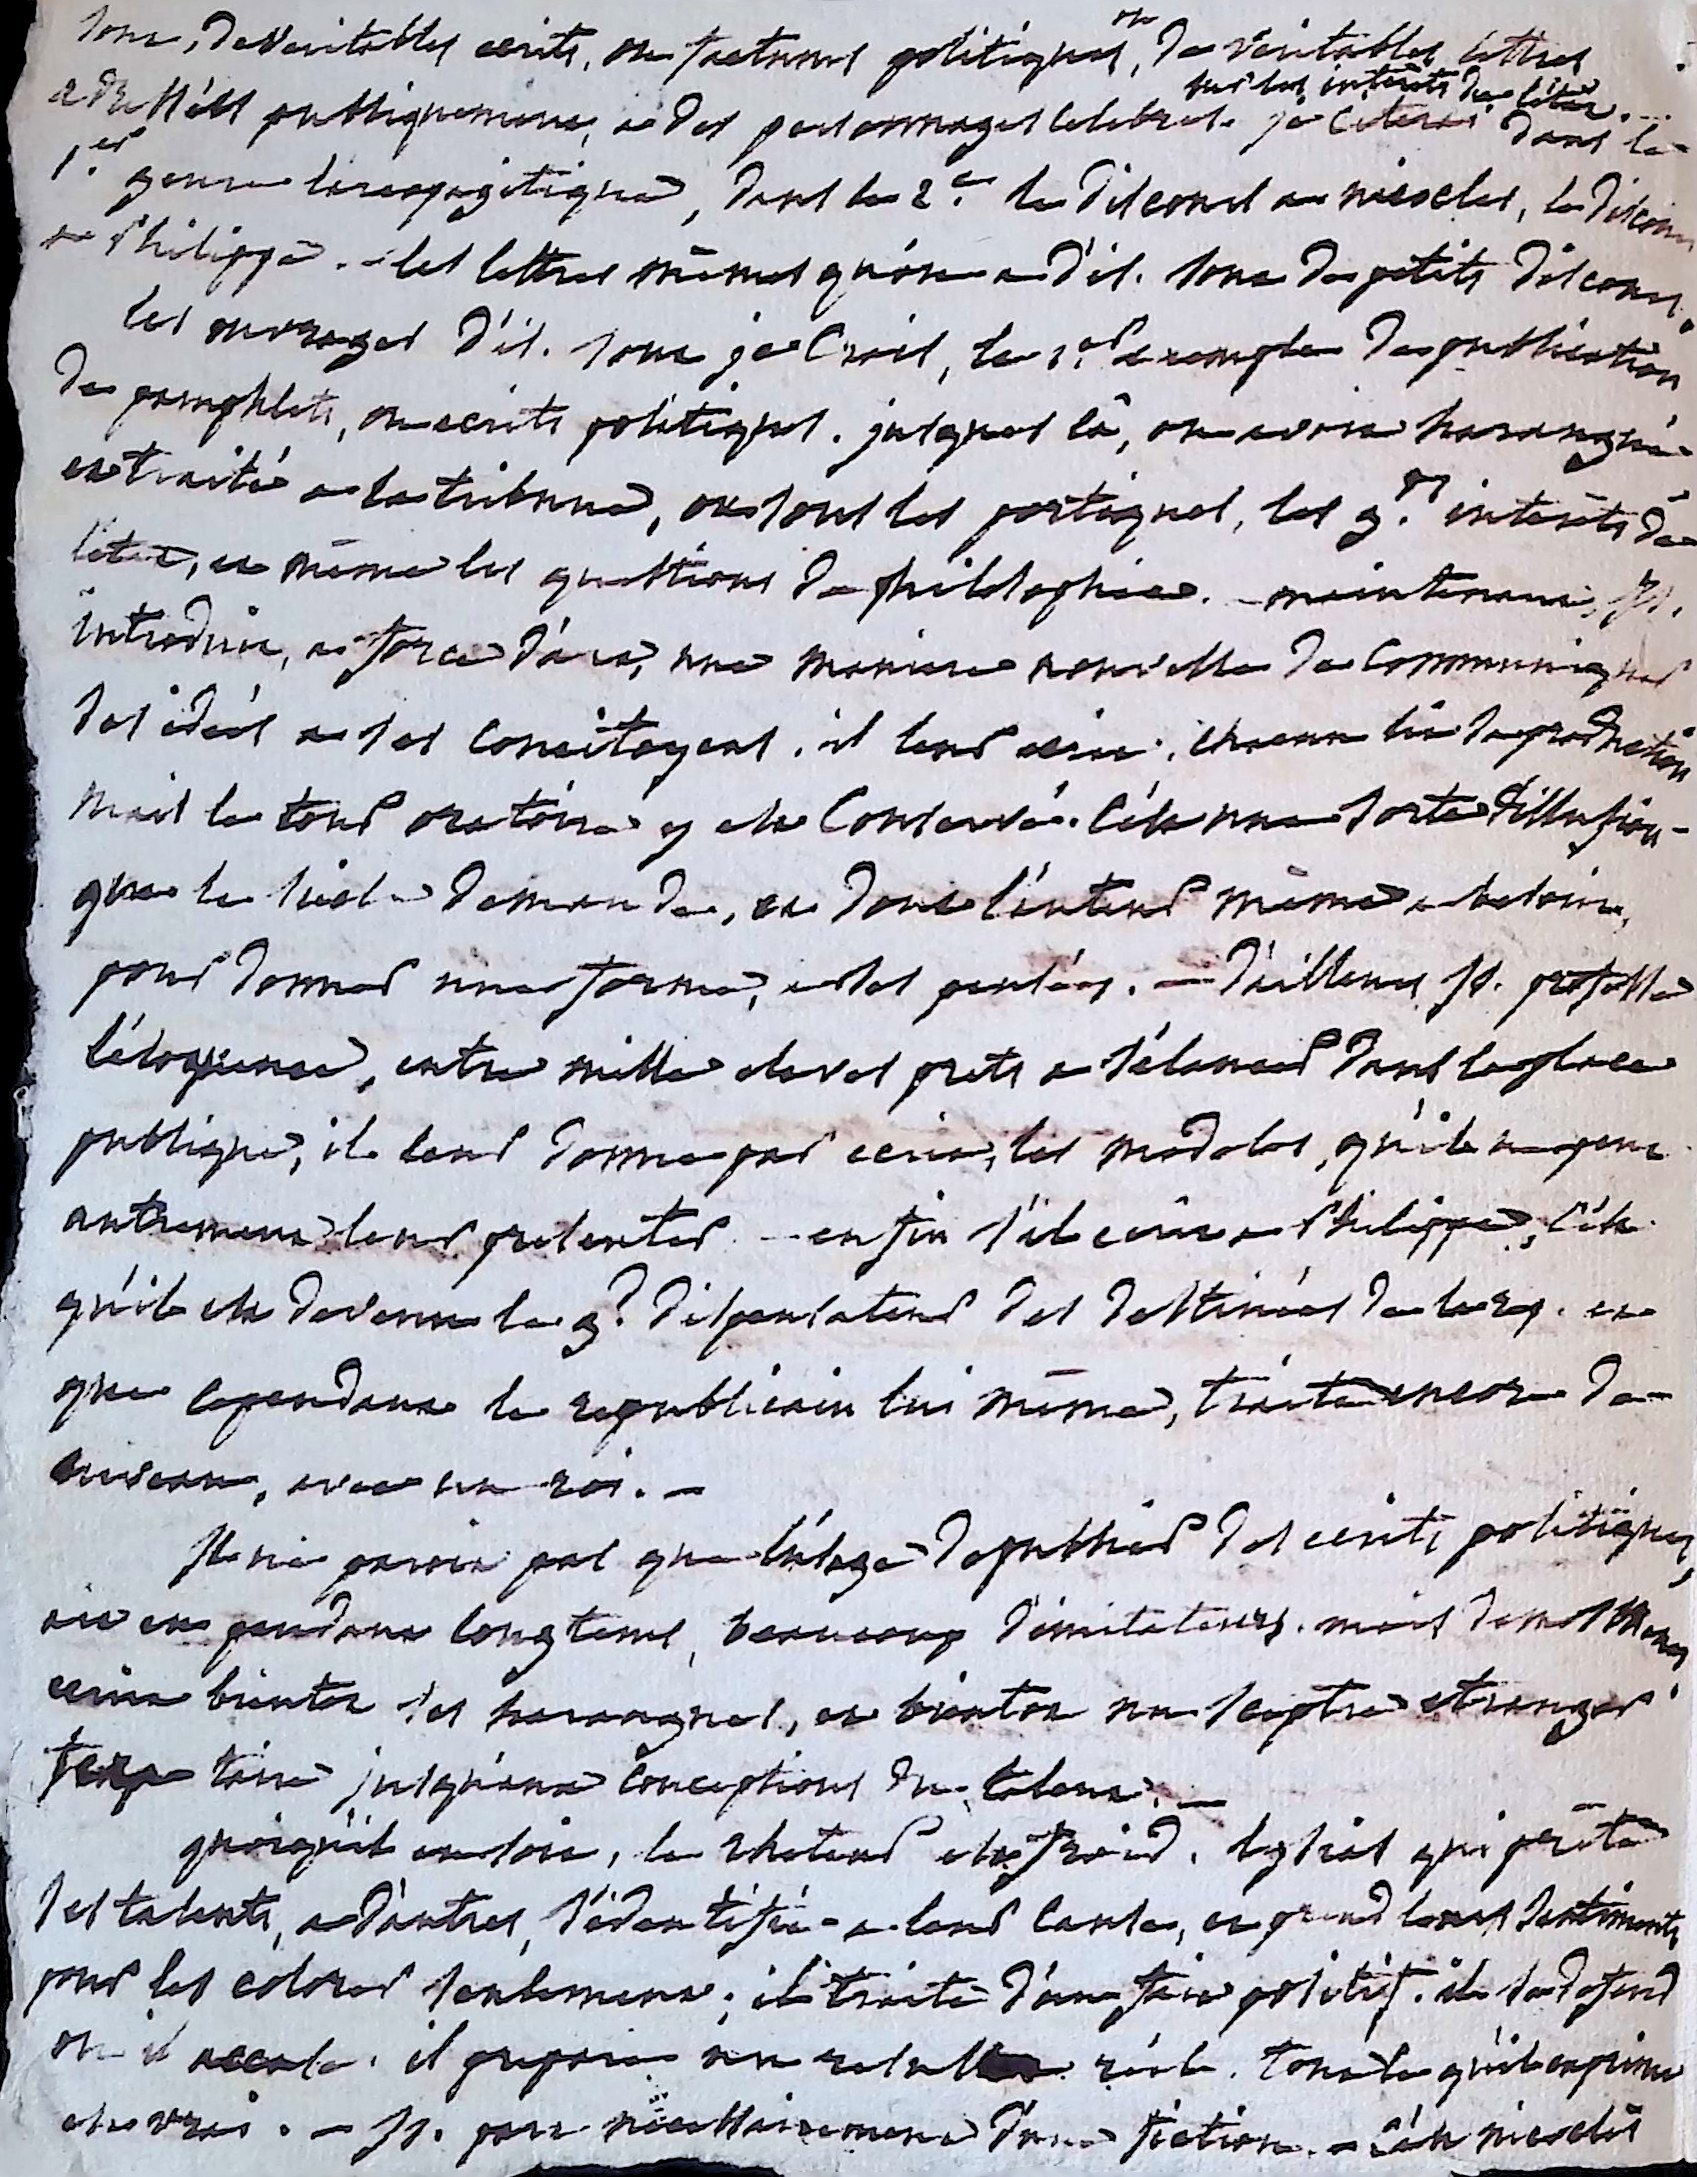 sont, de veritables ecrits, ou factums politiques, ou de veritables lettres
sur les interets de l'état....
adressées publiquement, a des personnages celebres. je citerai dans le
1.er genre l'areopagitique, dans le 2.e le discours a nicocles, le discours
a Philippe. - les lettres mêmes qu'on a d'is. sont de petits discours.
les ouvrages d'is. sont je crois, le 1.er exemple de publication
de pamphlets, ou ecrits politiques. jusques là, on avoit harangué
et traité a la tribune, ou sous les portiques, les g.ds interêts de
l'état, et même les questions de philosophie. - maintenant, is.
introduit, a force d'art, une maniere nouvelle de communiquer
ses idées a ses concitoyens. il leur ecrit. chacun lit sa production
mais le tour oratoire y est conservé. c'est une sorte d'illusion
que le siecle demande, et dont l'auteur même a besoin,
pour donner une forme, a ses pensées. - d'ailleurs is. professe
l'éloquence, entre mille eleves prets a s'élancer dans la place
publique, il leur donne par ecrit, les modeles, qu'il ne peut
autrement leur presenter. - enfin s'il ecrit a Philippe, c'est
qu'il est devenu le g.d dispensateur des destinées de la rep. et
que cependant le republicain lui même, traite encore de
niveau, avec un roi. -
Il ne paroit pas que l'usage de publier des ecrits politiques,
ait eu pendant longtems, beaucoup d'imitateurs. mais demosthenes
ecrira bientot ses harangues, et bientot un sceptre etranger
fera taire jusqu'aux conceptions du talent. -
quoiqu'il en soit, le rheteur est froid. lysias qui prête
ses talents, a d'autres, s'identifie a leur cause, et prend leurs sentiments
pour les colorer seulement; il traite d'un fait positif. il se defend
ou il accuse. il prepare un resultat réel. tout ce qu'il exprime
est vrai. - is. part necessairement d'une fiction. - c'est nicoclès